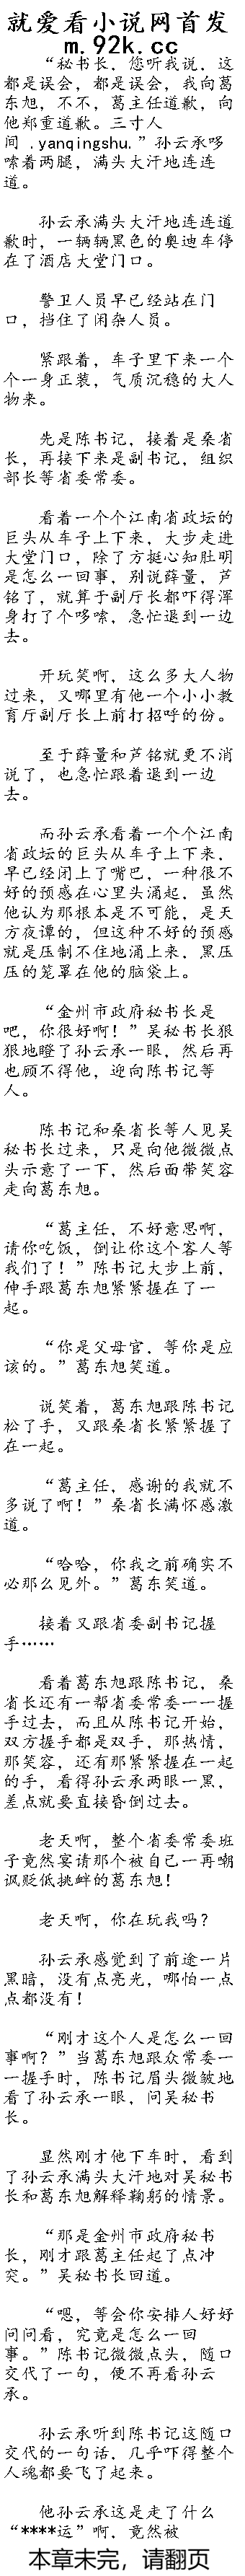 就爱看小说网首发
m.92k.cc
“秘书长，您听我说，这
都是误会，都是误会，我向葛
东旭，不不，葛主任道歉，向
他郑重道歉。三寸人
间 .yanqingshu.”孙云承哆
嗦着两腿，满头大汗地连连
道。
孙云承满头大汗地连连道
歉时，一辆辆黑色的奥迪车停
在了酒店大堂门口。
警卫人员早已经站在门
口，挡住了闲杂人员。
紧跟着，车子里下来一个
个一身正装，气质沉稳的大人
物来。
先是陈书记，接着是桑省
长，再接下来是副书记，组织
部长等省委常委。
看着一个个江南省政坛的
巨头从车子上下来，大步走进
大堂门口，除了方挺心知肚明
是怎么一回事，别说薛量，芦
铭了，就算于副厅长都吓得浑
身打了个哆嗦，急忙退到一边
去。
开玩笑啊，这么多大人物
过来，又哪里有他一个小小教
育厅副厅长上前打招呼的份。
至于薛量和芦铭就更不消
说了，也急忙跟着退到一边
去。
而孙云承看着一个个江南
省政坛的巨头从车子上下来，
早已经闭上了嘴巴，一种很不
好的预感在心里头涌起，虽然
他认为那根本是不可能，是天
方夜谭的，但这种不好的预感
就是压制不住地涌上来，黑压
压的笼罩在他的脑袋上。
“金州市政府秘书长是
吧，你很好啊！”吴秘书长狠
狠地瞪了孙云承一眼，然后再
也顾不得他，迎向陈书记等
人。
陈书记和桑省长等人见吴
秘书长过来，只是向他微微点
头示意了一下，然后面带笑容
走向葛东旭。
“葛主任，不好意思啊，
请你吃饭，倒让你这个客人等
我们了！”陈书记大步上前，
伸手跟葛东旭紧紧握在了一
起。
“你是父母官，等你是应
该的。”葛东旭笑道。
说笑着，葛东旭跟陈书记
松了手，又跟桑省长紧紧握了
在一起。
“葛主任，感谢的我就不
多说了啊！”桑省长满怀感激
道。
“哈哈，你我之前确实不
必那么见外。”葛东笑道。
接着又跟省委副书记握
手……
看着葛东旭跟陈书记，桑
省长还有一帮省委常委一一握
手过去，而且从陈书记开始，
双方握手都是双手，那热情，
那笑容，还有那紧紧握在一起
的手，看得孙云承两眼一黑，
差点就要直接昏倒过去。
老天啊，整个省委常委班
子竟然宴请那个被自己一再嘲
讽贬低挑衅的葛东旭！
老天啊，你在玩我吗？
孙云承感觉到了前途一片
黑暗，没有点亮光，哪怕一点
点都没有！
“刚才这个人是怎么一回
事啊？”当葛东旭跟众常委一
一握手时，陈书记眉头微皱地
看了孙云承一眼，问吴秘书
长。
显然刚才他下车时，看到
了孙云承满头大汗地对吴秘书
长和葛东旭解释鞠躬的情景。
“那是金州市政府秘书
长，刚才跟葛主任起了点冲
突。”吴秘书长回道。
“嗯，等会你安排人好好
问问看，究竟是怎么一回
事。”陈书记微微点头，随口
交代了一句，便不再看孙云
承。
孙云承听到陈书记这随口
交代的一句话，几乎吓得整个
人魂都要飞了起来。
他孙云承这是走了什么
“****运”啊，竟然被
本章未完，请翻页